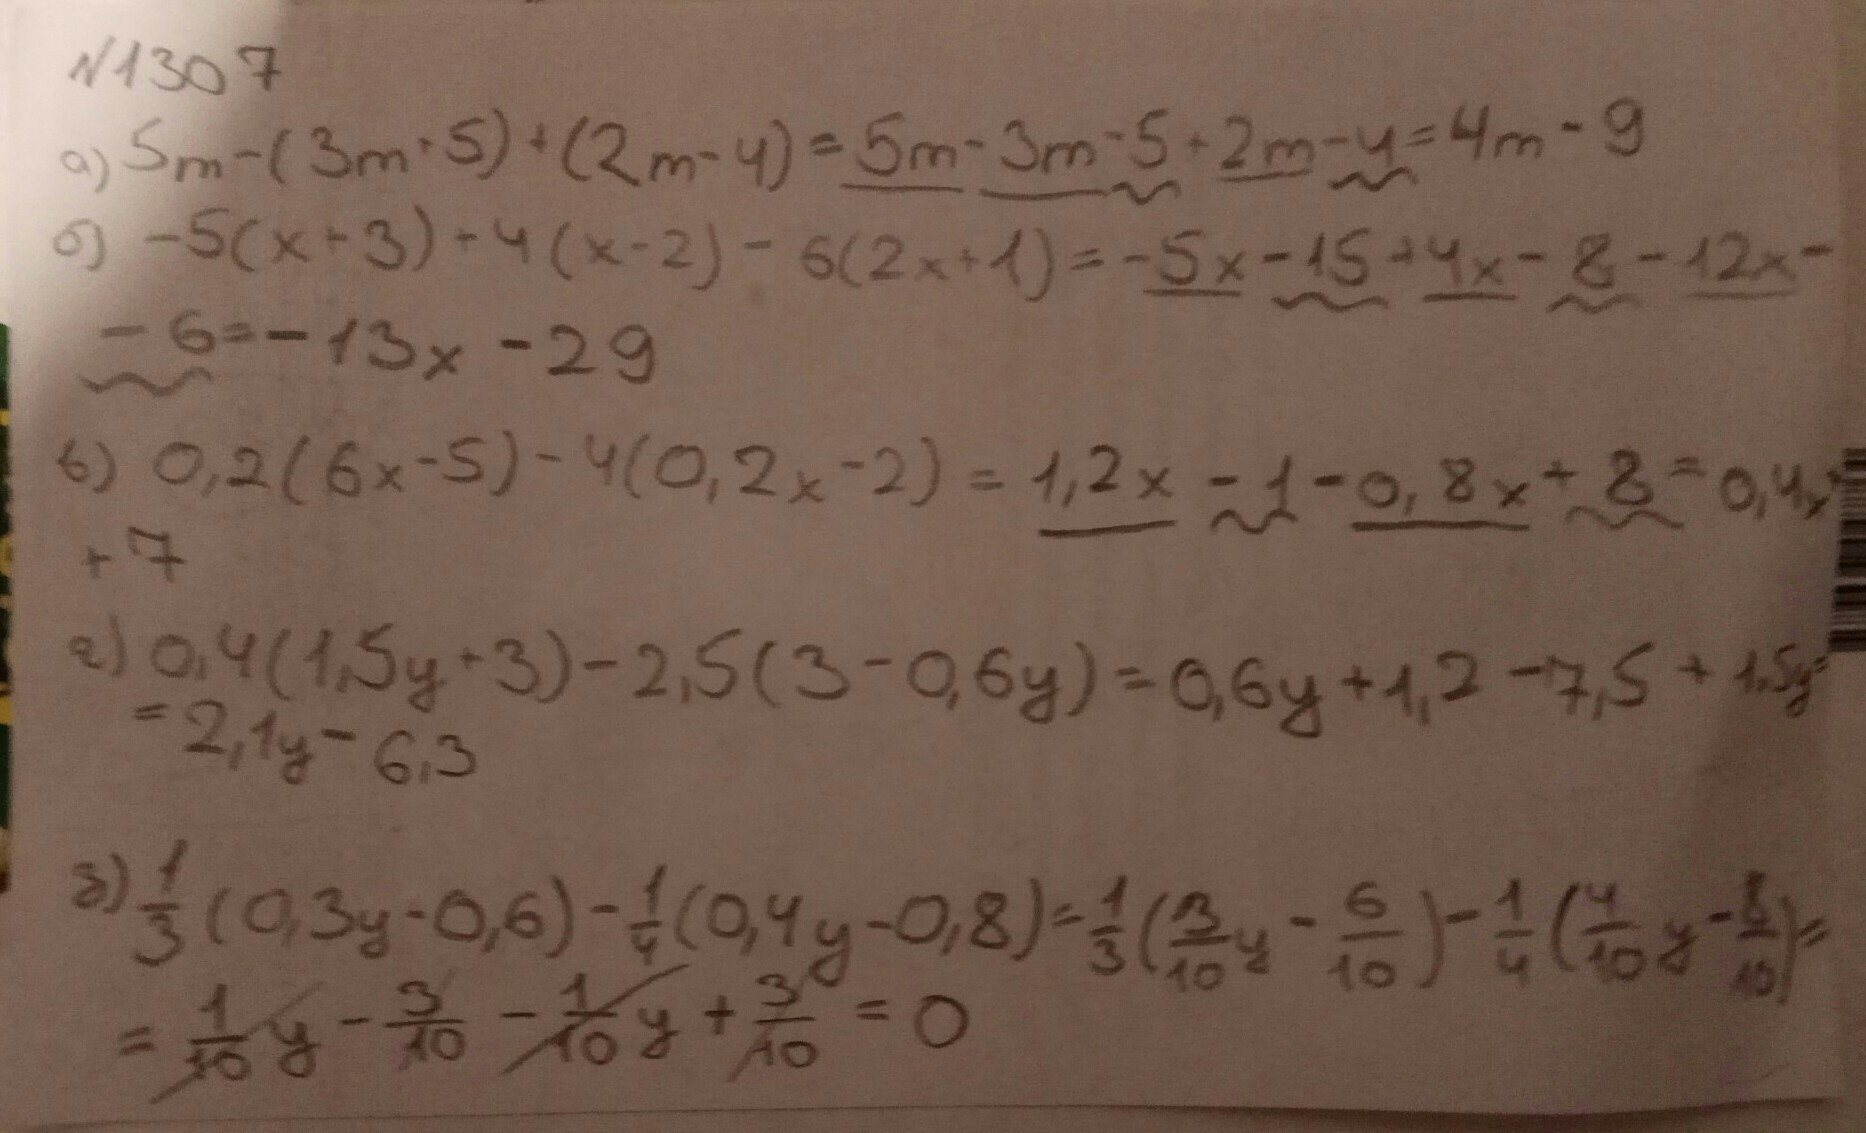 №1307
а) 5m-(3m+5)+(2m-4)=5m-3m-5+2m-4=4m-9
б) -5(x+3)+4(x-2)-6(2x+1)=-5x-15+4x-8-12x-
-6=-13x-29
в) 0,2(6x-5)-4(0,2x-2)=1,2x-1-0,8x+8=0,4x+
+7
г) 0,4(1,5y+3)-2,5(3-0,6y)=0,6y+1,2-7,5+1,5y=
=2,1y-6,3
д) 1/3(0,3y-0,6)-1/4(0,4y-0,8)=1/3(3/10y-6/10)-1/4(4/10y-8/10)=
=1/10y-3/10-1/10y+3/10=0